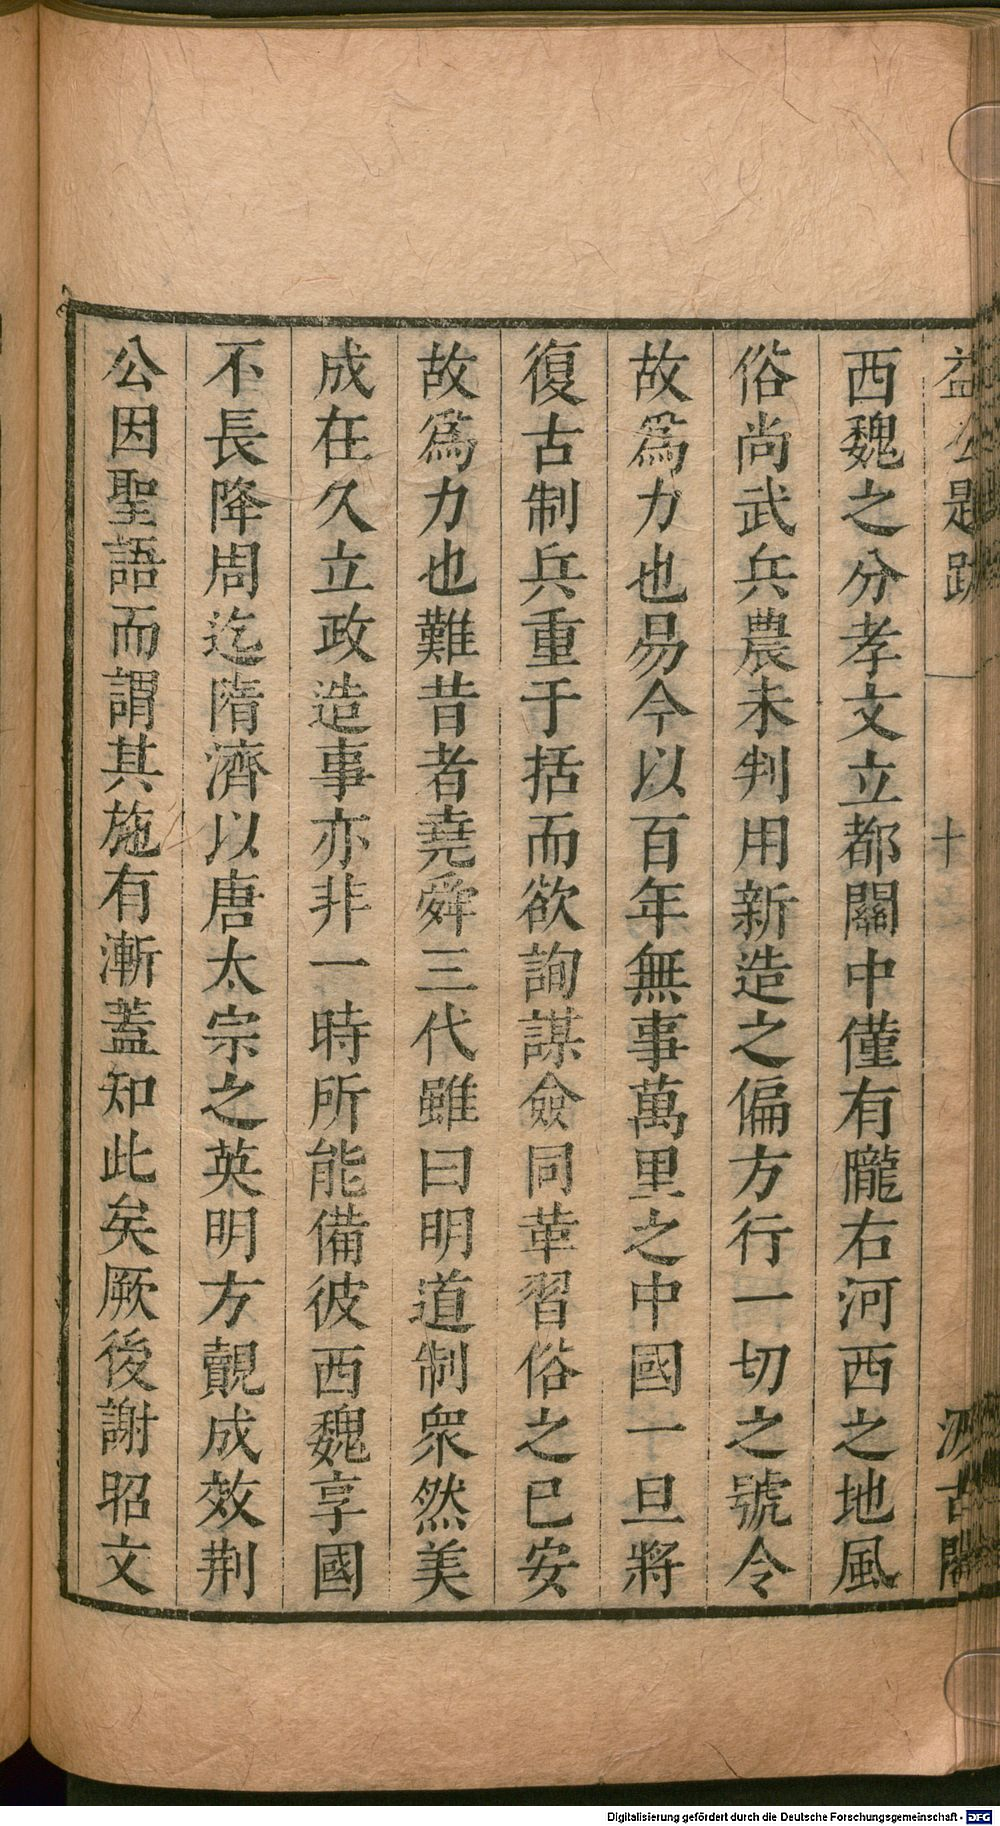 益公題跋 十 汲古閣
西魏之分孝文立都關中僅有隴右河西之地風
俗尚武兵農未判用新造之偏方行一切之號令
故爲力也易今以百年無事萬里之中國一旦將
復古制兵重于括而欲詢謀僉同革習俗之已安
故爲力也難昔者堯舜三代雖曰明道制衆然美
成在久立政造事亦非一時所能備彼西魏享國
不長降周迄隋濟以唐太宗之英明方覩成效荆
公因聖語而謂其施有漸蓋知此矣厥後謝昭文
Digitalisierung gefördert durch die Deutsche Forschungsgemeinschaft - DFG